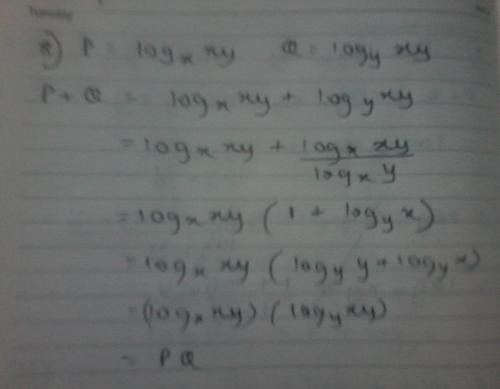 Tuesday
*) P = log_x xy Q = log_y xy
P + Q = log_x xy + log_y xy
= log_x xy + (log_x xy)/(log_x y)
= log_x xy (1 + log_y x)
= log_x xy (log_y y + log_y x)
= (log_x xy) (log_y xy)
= PQ